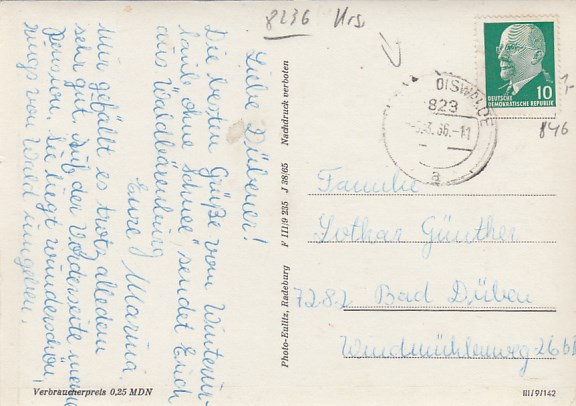 8236 Hrs.
Liebe Dübener!
Die besten Grüße vom "Winterur-
laub ohne Schnee" sendet Euch
aus Waldbärenburg
Eure Marina.
Mir gefällt es trotz alledem
sehr gut. Auf der Vorderseite meine
Pension. Sie liegt wunderschön,
rings von Wald umgeben.
Verbraucherpreis 0,25 MDN
Photo-Eulitz, Radeburg F III/9 235 J 38/65 Nachdruck verboten
DISWALDE
823
66.-11
a
10
DEUTSCHE
DEMOKRATISCHE REPUBLIK
1,-
846
Familie
Lothar Günther
7282 Bad Düben
Windmühlenweg 26b
III/9/142